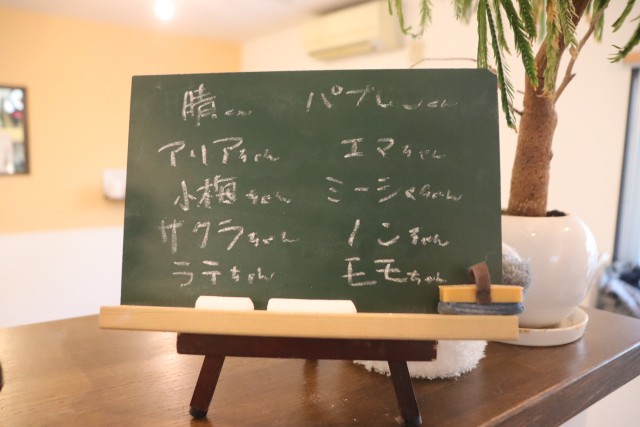 晴くん パブレくん
アリアちゃん エマちゃん
小梅ちゃん ミーシャちゃん
サクラちゃん ノンちゃん
ラテちゃん モモちゃん